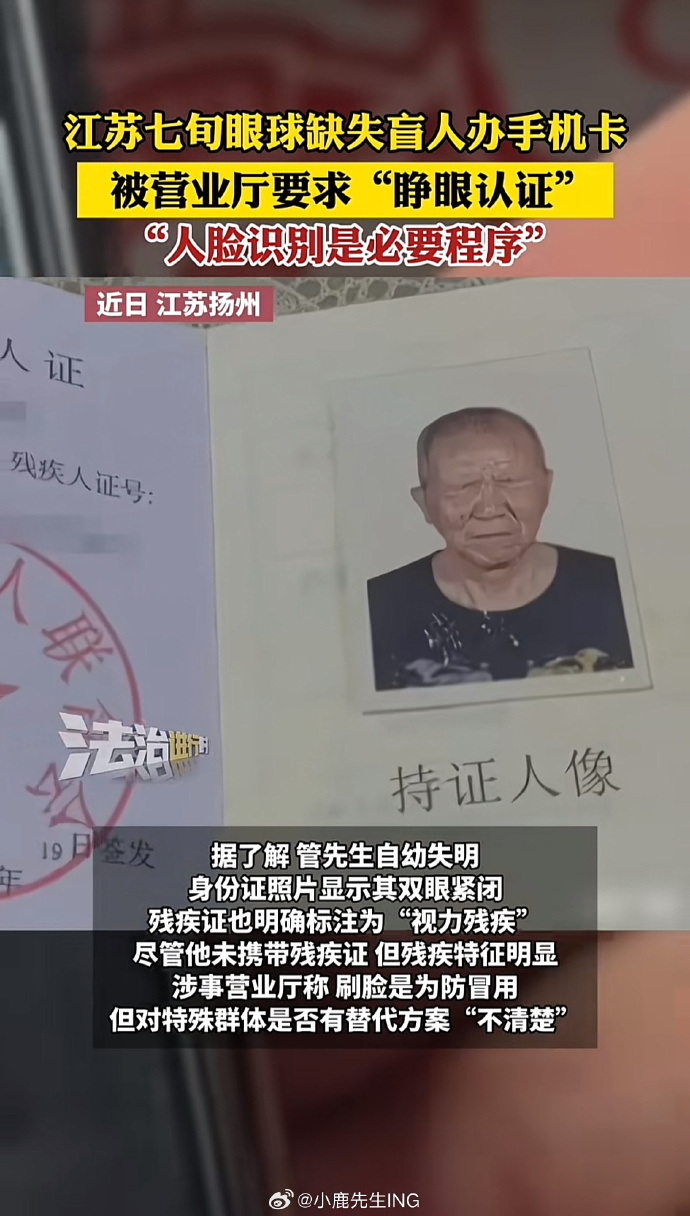 江苏七旬眼球缺失盲人办手机卡
被营业厅要求“睁眼认证”
“人脸识别是必要程序”
近日 江苏扬州
人证
残疾人证号:
人联
合
19日签发
年
持证人像
法治进行时
据了解 管先生自幼失明
身份证照片显示其双眼紧闭
残疾证也明确标注为“视力残疾”
尽管他未携带残疾证 但残疾特征明显
涉事营业厅称 刷脸是为防冒用
但对特殊群体是否有替代方案“不清楚”
@小鹿先生ING